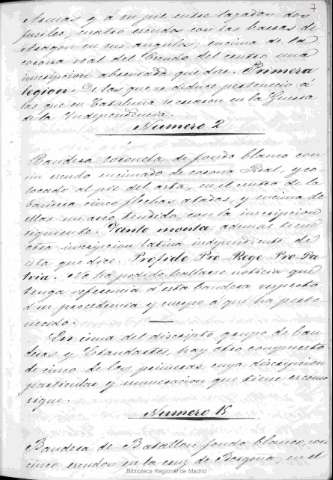 7
Armas y á su pie entre lazados dos
fusiles, cuatro escudos con las barras de
Aragon en sus angulos, encima de la
corona real del Escudo del centro una
inscripcion abreviada que dice. Primera
legion. De las que se deduce perteneció á
las que en Cataluña se crearon en la Guerra
de la Independencia.
Numero 2
Bandera coronela de fondo blanco con
un escudo encimado de corona Real, y co-
locado al pie del asta, en el centro de la
bandera cinco flechas atadas, y encima de
ellas un arco tendido, con la inscripcion
siguiente. Tanto monta, además tiene
otra inscripcion latina independiente de
esta que dice. Profide Pro-Rege-Pro-Pa-
tria. No ha podido hallarse noticia que
tenga referencia á esta bandera respecto
á su procedencia y cuerpo á que ha perte-
necido.
Encima del descripto grupo de ban-
deras y Estandartes, hay otro compuesto
de cinco de las primeras cuya descripcion
particular y numeracion que tiene es como
sigue.
Numero 15
Bandera de Batallon fondo blanco, con
cinco escudos en la cruz de Borgoña, en el
Biblioteca Regional de Madrid